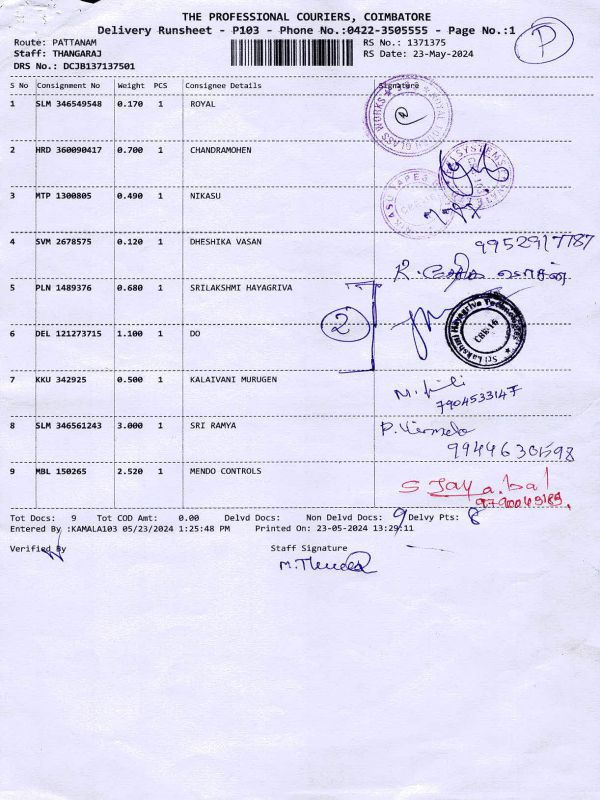 THE PROFESSIONAL COURIERS, COIMBATORE
Delivery Runsheet - P103 - Phone No.:0422-3505555 - Page No.:1
P
Route: PATTANAM
RS No.: 1371375
Staff: THANGARAJ
RS Date: 23-May-2024
DRS No.: DCJB137137501
S No Consignment No Weight PCS Consignee Details Signature
1 SLM 346549548 0.170 1 ROYAL
2 HRD 360090417 0.700 1 CHANDRAMOHEN
3 MTP 1300805 0.490 1 NIKASU
4 SVM 2678575 0.120 1 DHESHIKA VASAN
9952917787
5 PLN 1489376 0.680 1 SRILAKSHMI HAYAGRIVA
2
Sri Lakshmi Hayagriva Technologies
CBE-16
6 DEL 121273715 1.100 1 DO
7 KKU 342925 0.500 1 KALAIVANI MURUGEN
7904533147
8 SLM 346561243 3.000 1 SRI RAMYA
9944630598
9 MBL 150265 2.520 1 MENDO CONTROLS
S Jayabal
Tot Docs: 9 Tot COD Amt: 0.00 Delvd Docs: Non Delvd Docs: 9 Delvy Pts: 8
Entered By :KAMALA103 05/23/2024 1:25:48 PM Printed On: 23-05-2024 13:29:11
Verified By Staff Signature